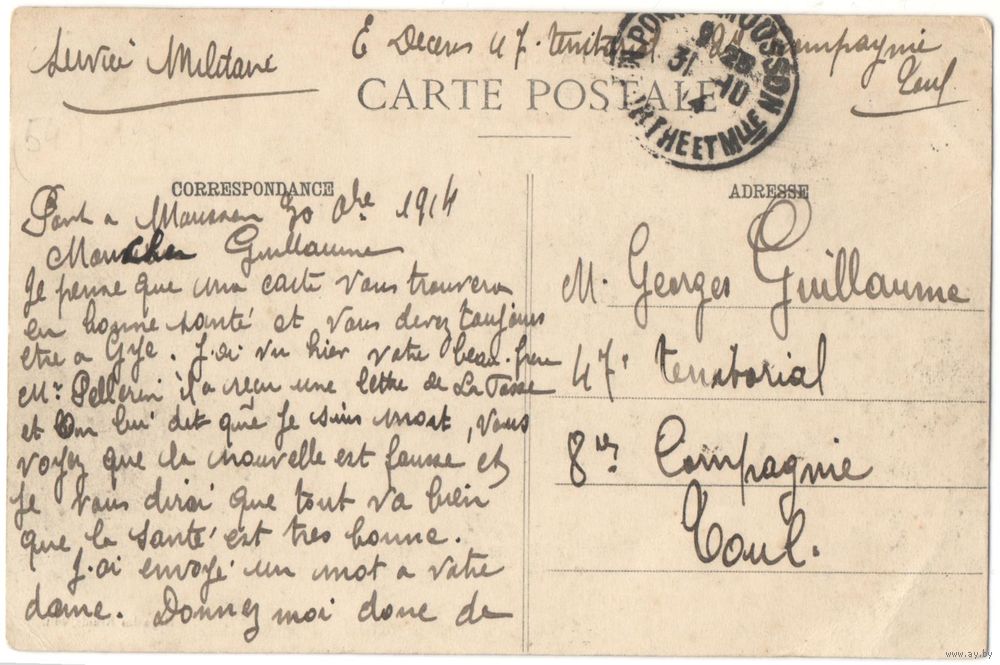 Service Militaire
E Deceres 47. territorial compagnie
Toul.
CARTE POSTALE
PONT MOUSSON
9 25
31 -10
4
RTHE ET MLLE
CORRESPONDANCE
Pont a Mousson 30 Obre 1914
Mon cher Guillaume
Je pense que ma carte vous trouvera
en bonne santé et vous devez toujours
etre a Gye. J.ai vu hier votre beau-frere
Mr Pellerin il a reçu une lettre de La
et on lui dit que Je suis mort, vous
voyez que la nouvelle est fausse et
Je vous dirai que tout va bien
que la santé est tres bonne.
J.ai envoyé un mot a votre
dame. Donnez moi donc de
ADRESSE
M. Georges Guillaume
47e territorial
8e Compagnie
Toul.
www.ay.by